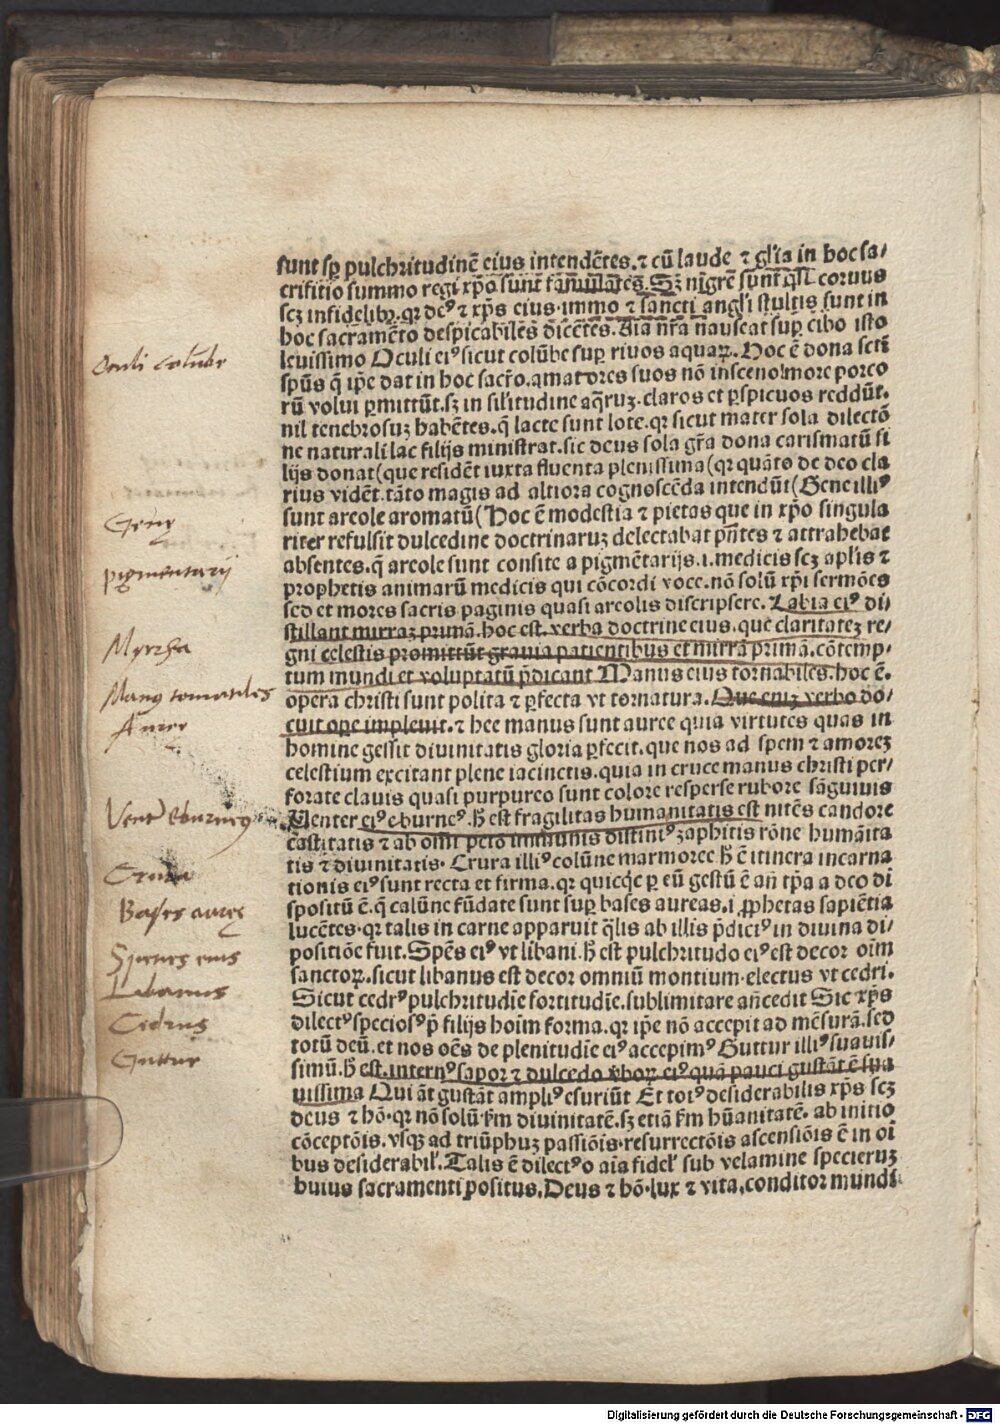 sunt sp̄ pulchritudinē eius intendētes. ⁊ cū laude ⁊ gl'ia in hoc sa/
crifitio summo regi xp̄o sunt famulātes. Sꝫ nigre sunt q̄si coruus
scꝫ infidelibꝰ. qꝛ deꝰ ⁊ xp̄s eius. immo ⁊ sancti angl'i stultis sunt in
hoc sacramēto despicabiles dicētes. Aīa nr̄a nauseat suꝑ cibo isto
leuissimo Oculi eiꝰ sicut colūbe suꝑ riuos aquaꝝ. Hoc ē dona sctī
spūs q̄ ip̄e dat in hoc sacr̄o. amatores suos nō in sceno more porco
rū volui ꝑmittūt. sꝫ in sil'itudine aq̄ruꝫ. claros et ꝑspicuos reddūt.
nil tenebrosuꝫ habētes. q̄ lacte sunt lote. qꝛ sicut mater sola dilectō
ne naturali lac filijs ministrat. sic deus sola gr̄a dona carismatū fi
lijs donat (que residēt iuxta fluenta plenissima (qꝛ quāto de deo cla
rius vidēt. tāto magis ad altiora cognoscēda intendūt (Gene illiꝰ
sunt areole aromatū (Hoc ē modestia ⁊ pietas que in xp̄o singula
riter refulsit dulcedine doctrinaruꝫ delectabat pn̄tes ⁊ attrahebat
absentes. q̄ areole sunt consite a pigmētarijs. i. medicis scꝫ apl'is ⁊
prophetis animarū medicis qui cōcordi voce. nō solū xp̄i sermōes
sed et mores sacris paginis quasi areolis discripsere. Labia eiꝰ di/
stillant mirraꝫ primā. hoc est. verba doctrine eius. que claritateꝫ re/
gni celestis promittūt grauia patientibus et mirrā primā. cōtemp/
tum mundi et voluptatū p̄dicant Manus eius tornabiles. hoc ē.
opera christi sunt polita ⁊ ꝑfecta vt tornatura. Que eniꝫ verbo do/
cuit ope impleuit. ⁊ hee manus sunt auree quia virtutes quas in
homine gessit diuinitatis gloria ꝑfecit. que nos ad spem ⁊ amoreꝫ
celestium excitant plene iacinctis. quia in cruce manus christi per/
forate clauis quasi purpureo sunt colore resperse rubore sāguinis
Venter eiꝰ eburneꝰ. h̄ est fragilitas humanitatis est nitēs candore
castitatis ⁊ ab om̄i pctō immunis distinꝰ zaphiris rōne humāita
tis ⁊ diuinitatis. Crura illiꝰ colūne marmoree h̄ ē itinera incarna
tionis eiꝰ sunt recta et firma. qꝛ quicq̄e ꝑ eū gestū ē an̄ tp̄a a deo di
spositū ē. q̄ calūne fūdate sunt suꝑ bases aureas. i ꝓphetas sapiētia
lucētes. qꝛ talis in carne apparuit q̄lis ab illis p̄dictꝰ in diuina di/
positiōe fuit. Spēs eiꝰ vt libani. h̄ est pulchritudo eiꝰ est decor oīm
sanctoꝝ. sicut libanus est decor omniū montium. electus vt cedri.
Sicut cedrꝰ pulchritudīe fortitudīe. sublimitate an̄cedit Sic xp̄s
dilectꝰ speciosꝰ p̄ filijs hoīm forma. qꝛ ip̄e nō accepit ad mēsurā. sed
totū deū. et nos oēs de plenitudīe eiꝰ accepimꝰ Guttur illiꝰ suauis/
simū. h̄ est. internꝰ sapor ⁊ dulcedo v̄boꝝ eiꝰ quā pauci gustāt ē sua
uissima Qui āt gustāt ampliꝰ esuriūt Et totꝰ desiderabilis xp̄s scꝫ
deus ⁊ hō. qꝛ nō solū s̄m diuinitatē. sꝫ etiā s̄m hūanitatē. ab initio
cōceptōis. vsqꝫ ad triūphuꝫ passiōis. resurrectōis ascensiōis ē in oī
bus desiderabil'. Talis ē dilectꝰ o aīa fidel' sub velamine specieruꝫ
huius sacramenti positus. Deus ⁊ hō. lux ⁊ vita. conditor mundi
Oculi columbe
Geny
pigmentarij
Myrrha
Manus tornatiles
Auree
Venter Eburneus
Crura
Bases auree
Species eius
Libanus
Cedrus
Guttur
Digitalisierung gefördert durch die Deutsche Forschungsgemeinschaft - DFG